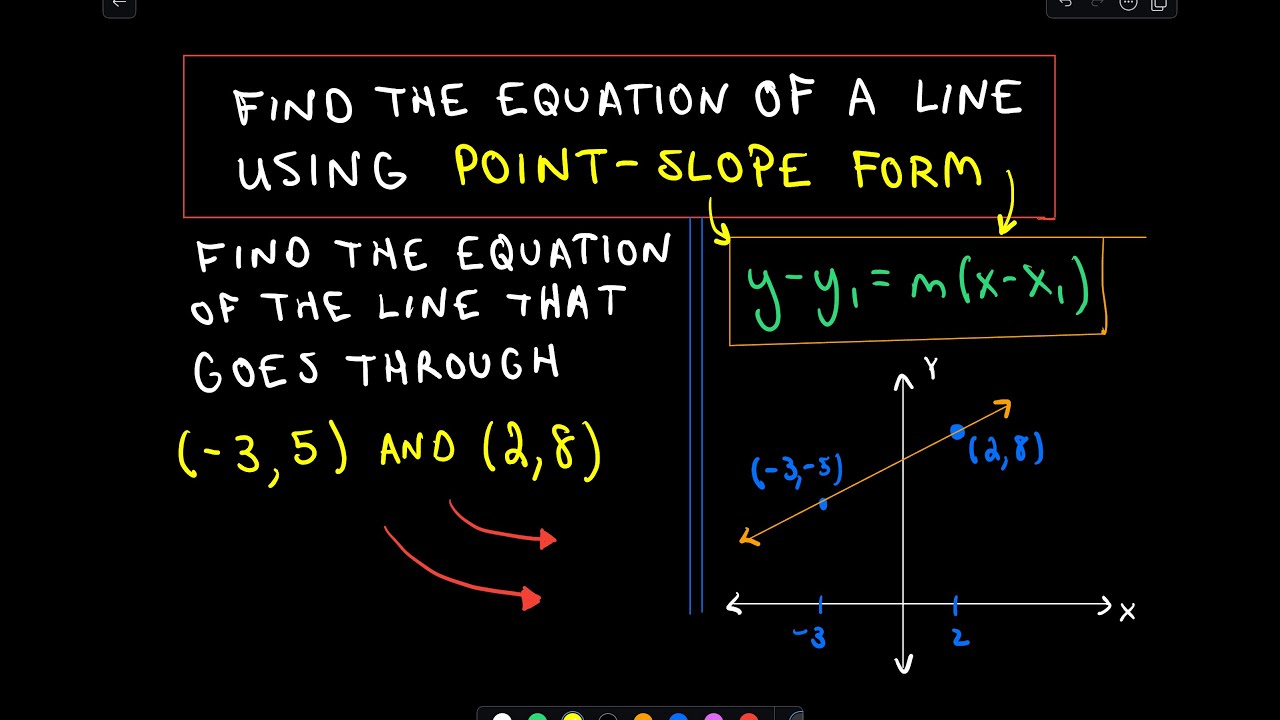 FIND THE EQUATION OF A LINE
USING POINT-SLOPE FORM
FIND THE EQUATION
OF THE LINE THAT
GOES THROUGH
(-3,5) AND (2,8)
y-y₁=m(x-x₁)
Y
(2,8)
(-3,-5)
X
-3
2